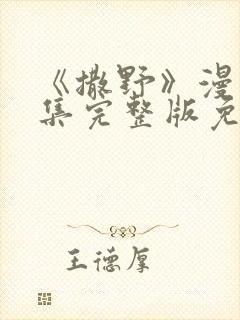 《撒野》漫
集完整版免
王德厚